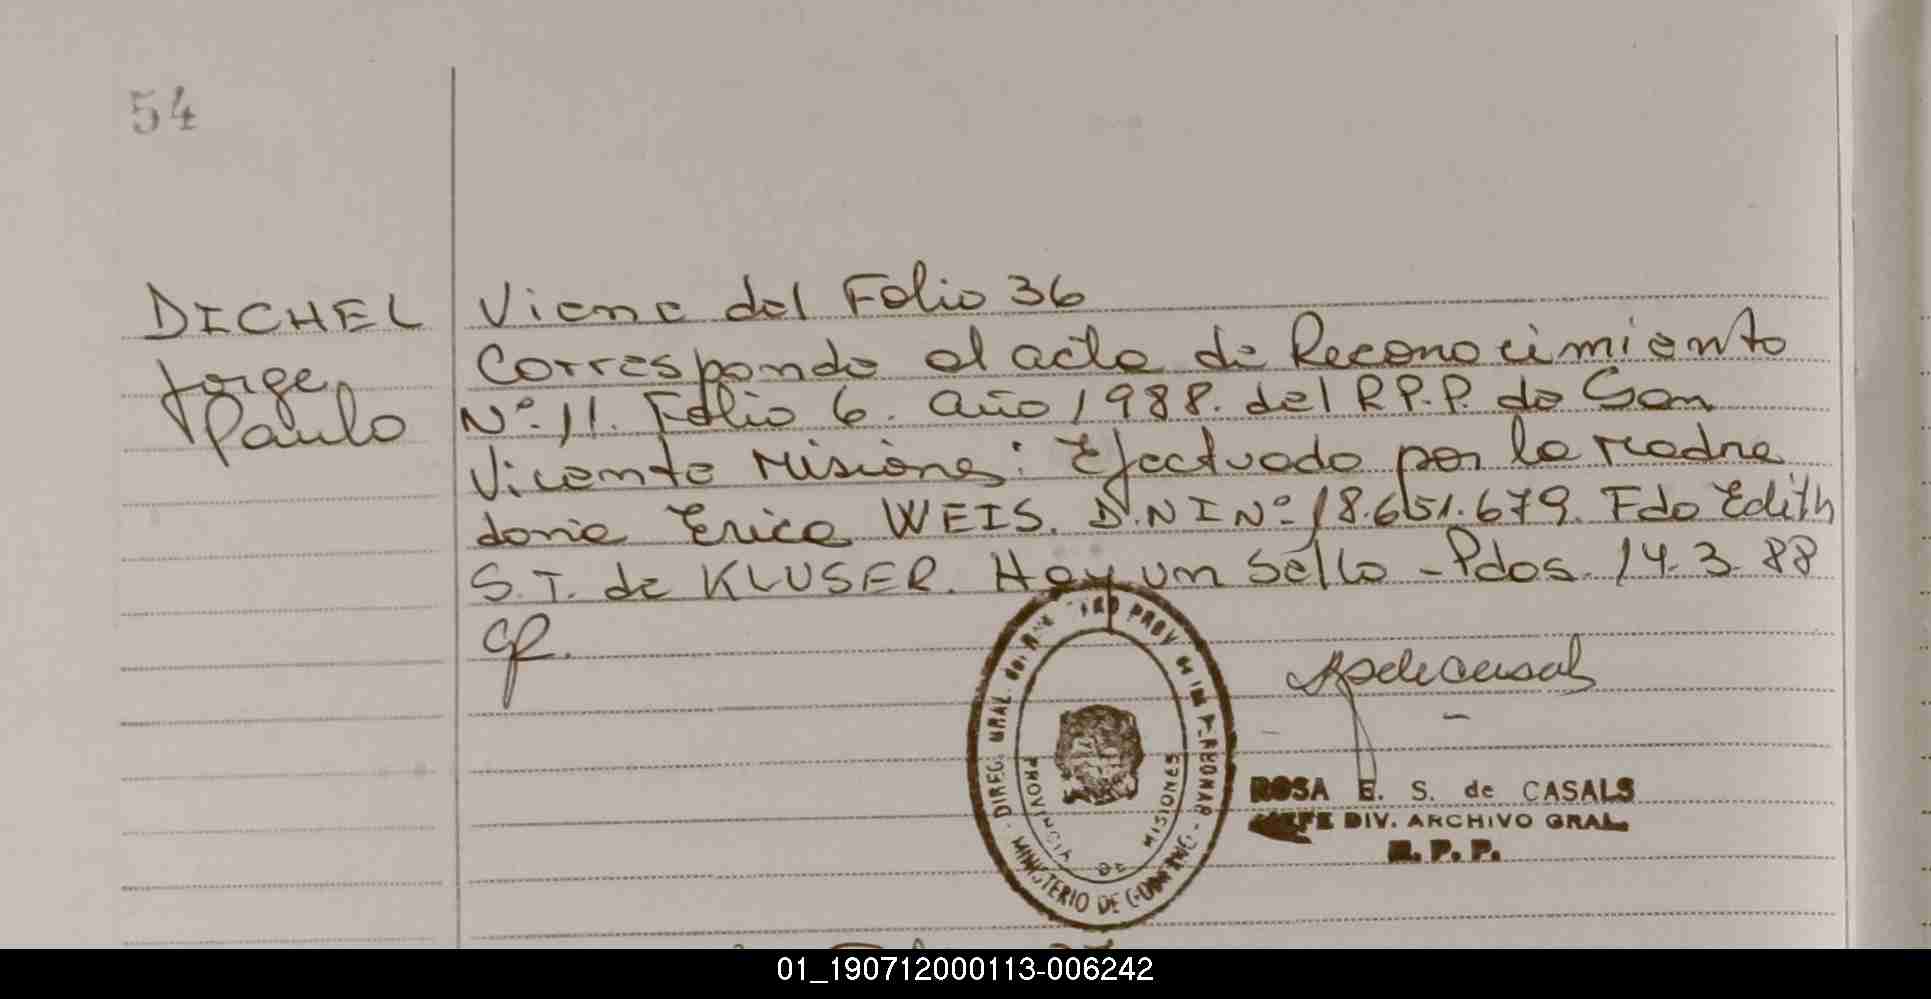 54
DICHEL
Jorge
Paulo
Viene del Folio 36
Corresponde al acta de Reconocimiento
Nº 11. Folio 6. año 1988. del R.P.P. de San
Vicente Misiones: Efectuado por la madre
doña Erica WEIS. D.N.I Nº 18.651.679. Fdo Edith
S.T. de KLUSER. Hay un Sello - Pdos. 14.3.88
DIREC. GRAL. DEL PROV. DE LAS PERSONAS
MINISTERIO DE GOBIERNO
PROVINCIA DE MISIONES
ROSA E. S. de CASALS
JEFE DIV. ARCHIVO GRAL.
R. P. P.
01_190712000113-006242